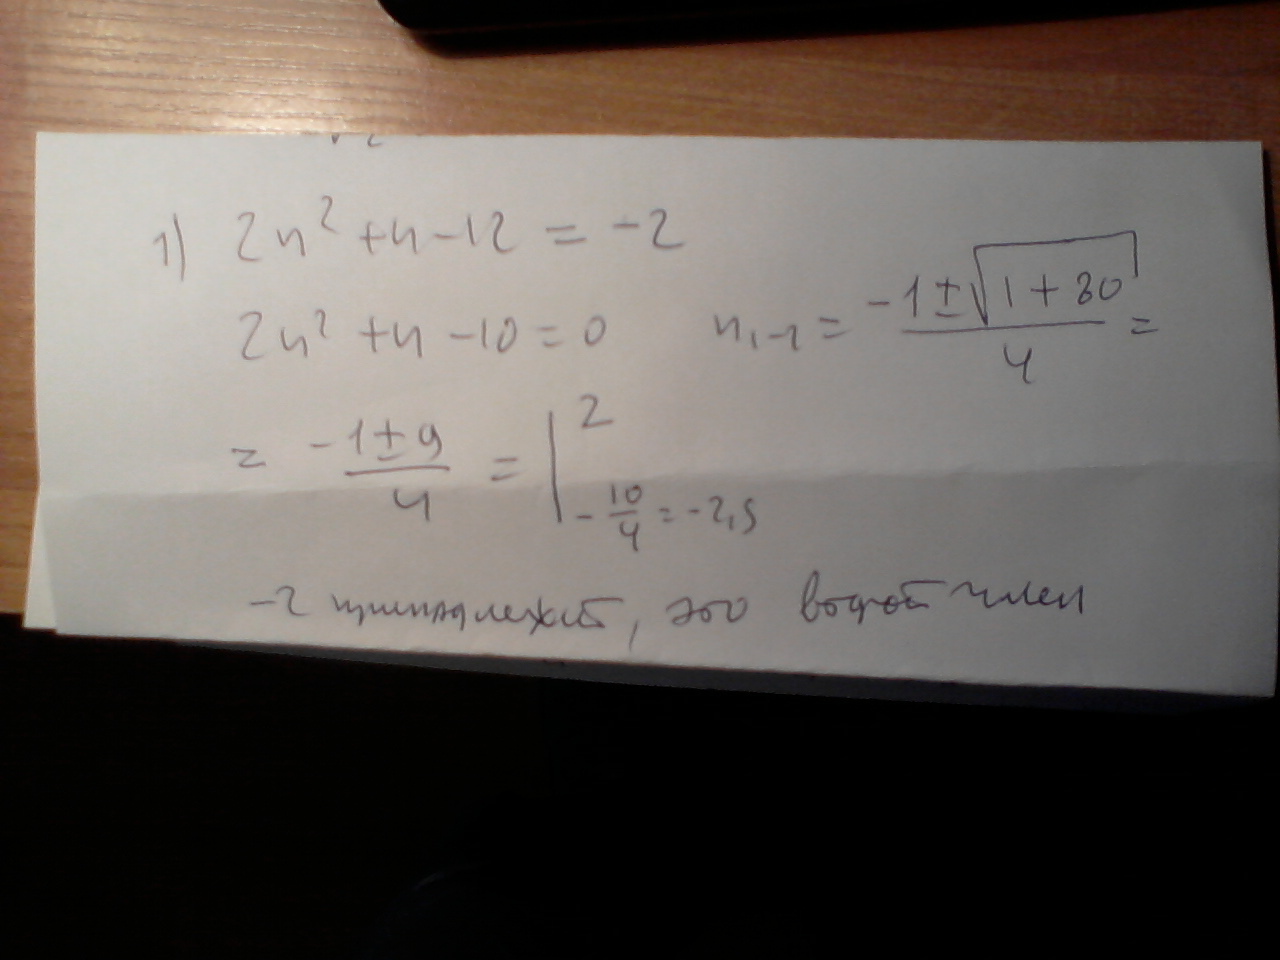 1) 2n² + n - 12 = -2
2n² + n - 10 = 0 n₁,₂ = (-1 ± √(1 + 80)) / 4 =
= (-1 ± 9) / 4 = | 2
-10/4 = -2,5
-2 принадлежит, это второй член